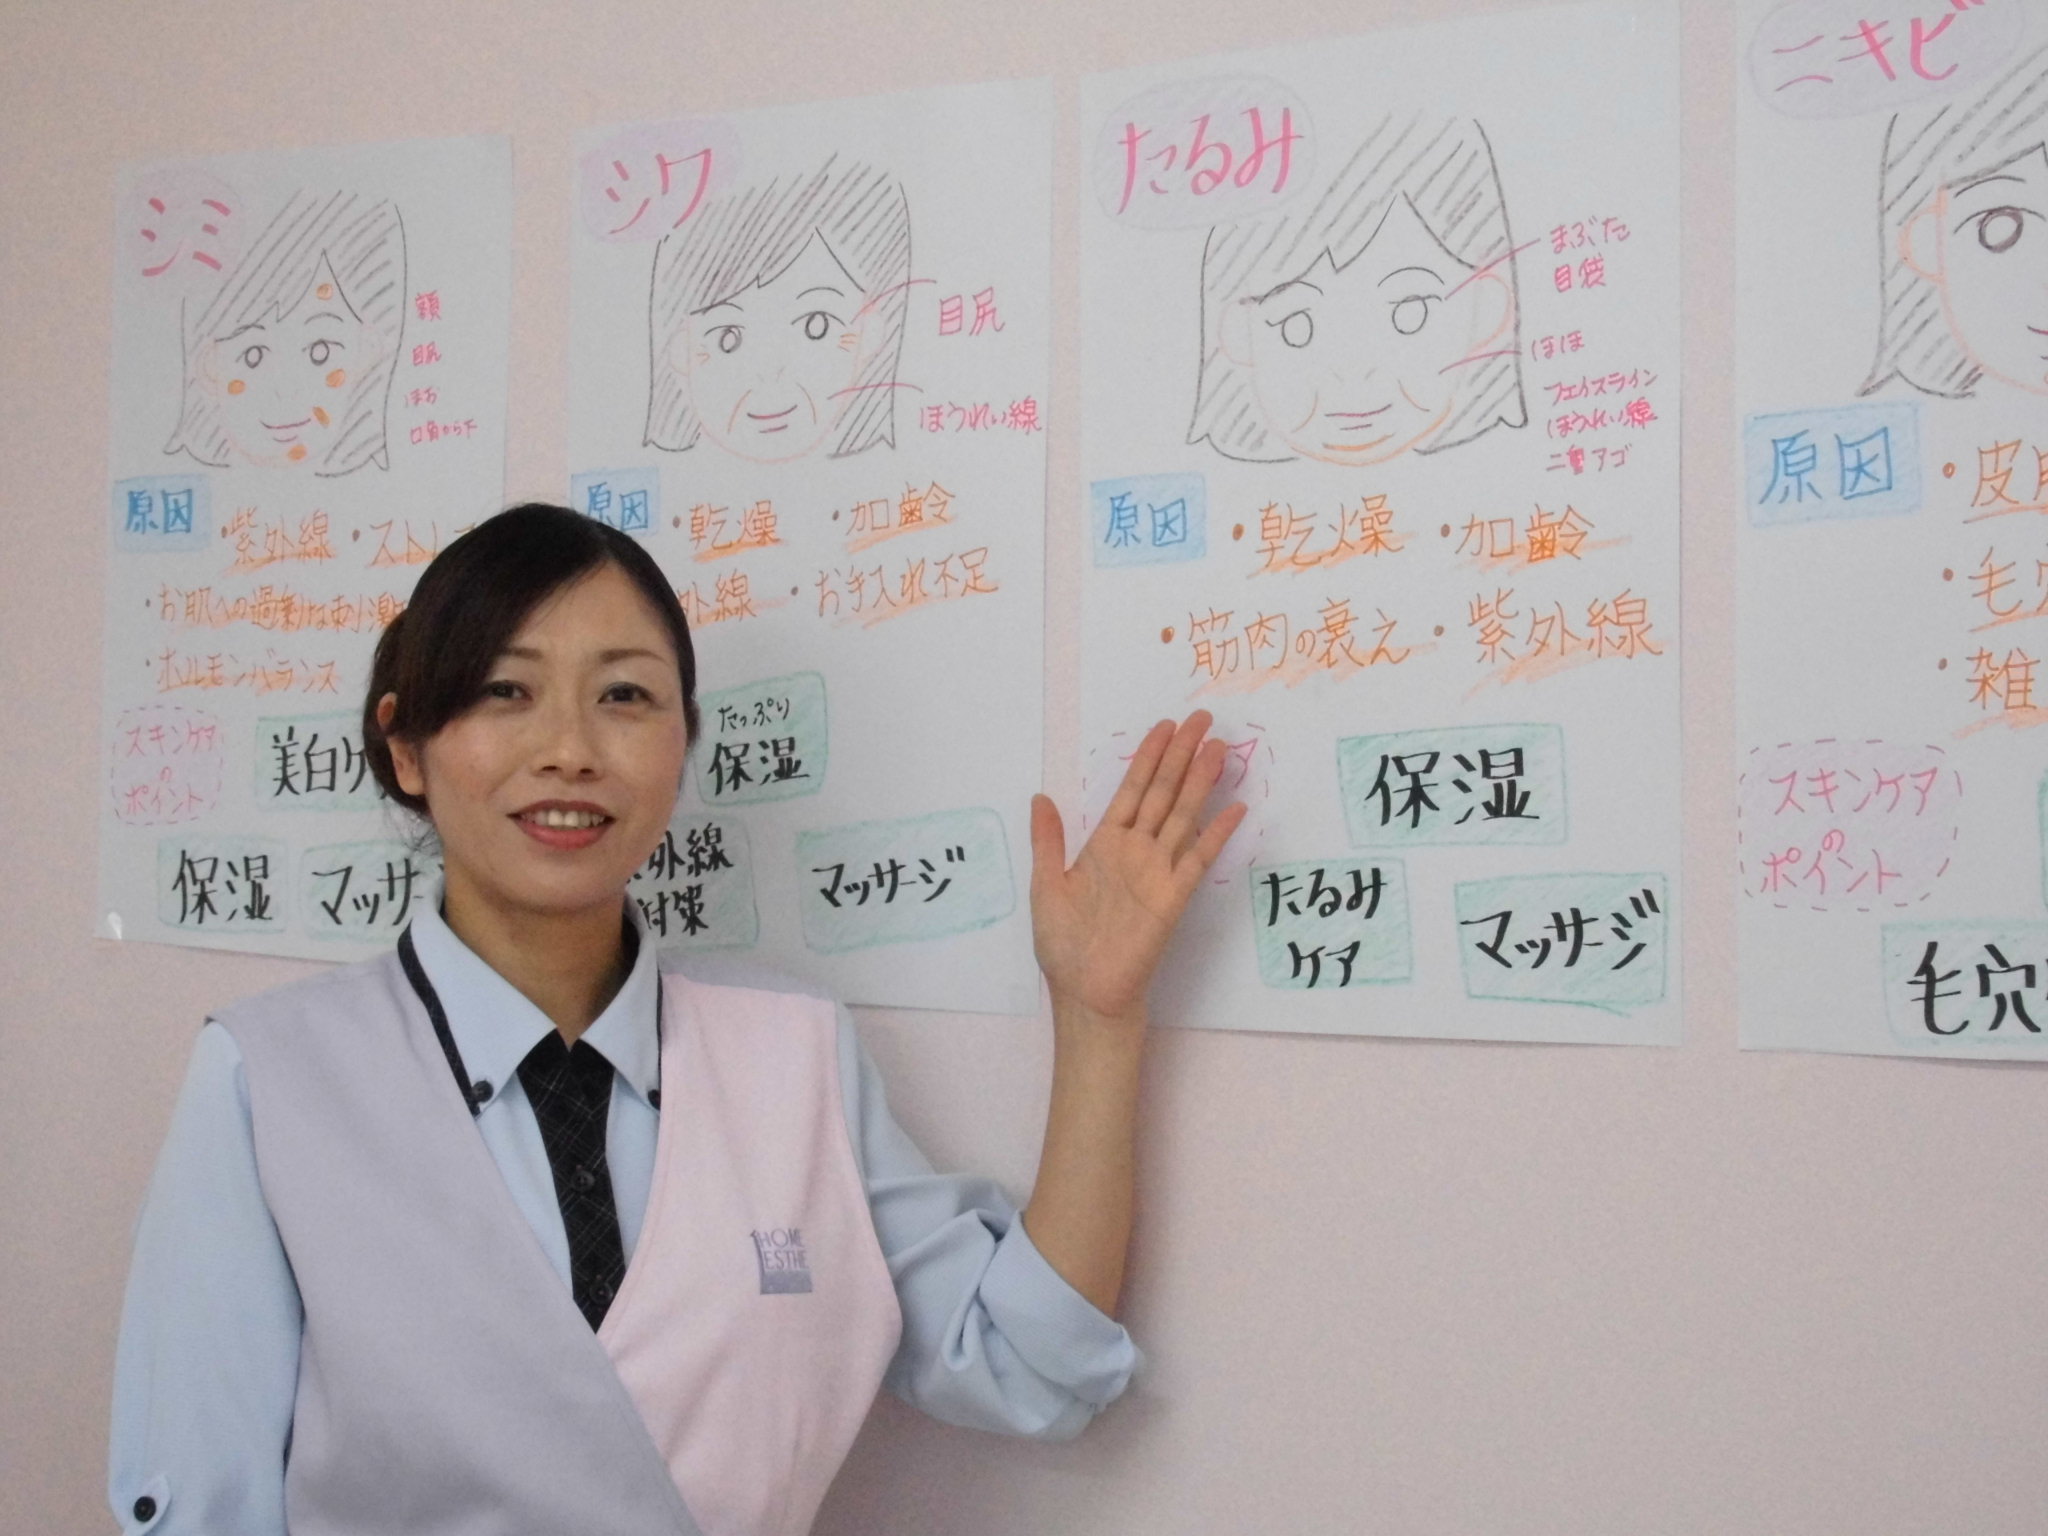 シミ
額
目尻
ほお
口角から下
原因
・紫外線 ・ストレ
・お肌への過剰な刺激
・ホルモンバランス
スキンケア
の
ポイント
美白ケ
保湿
マッサー
シワ
目尻
ほうれい線
原因
・乾燥 ・加齢
外線 ・お手入れ不足
たっぷり
保湿
外線
対策
マッサージ
たるみ
まぶた
目袋
ほほ
フェイスライン
ほうれい線
二重アゴ
原因
・乾燥 ・加齢
・筋肉の衰え ・紫外線
保湿
たるみ
ケア
マッサージ
ニキビ
原因
・皮
・毛穴
・雑
スキンケア
の
ポイント
毛穴
HOME
ESTHE